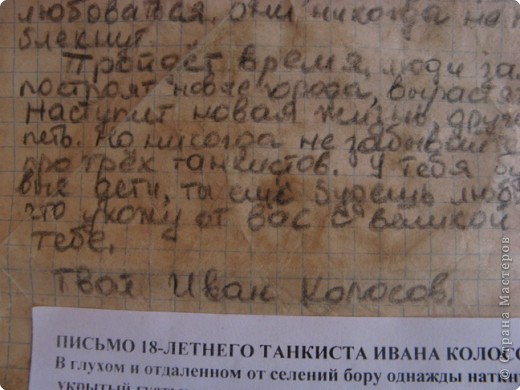 любоваться, они никогда не п
блекнут.
Пройдёт время, люди за
построят новые города, вырастя
Наступит новая жизнь, друг
петь. Но никогда не забывай
про трёх танкистов. У тебя бу
вые дети, ты ещё будешь люб
что ухожу от вас с великой
тебе.
Твой Иван Колосов.
ПИСЬМО 18-ЛЕТНЕГО ТАНКИСТА ИВАНА КОЛОСО
В глухом и отдаленном от селений бору однажды натк
укрытый густы
© Страна Мастеров